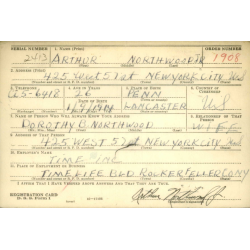 SERIAL NUMBER 1. NAME (Print) ORDER NUMBER
2513 ARTHUR NORTHWOOD JR 1908
2. ADDRESS (Print)
425 West 57 st NEW YORK CITY
3. TELEPHONE 4. AGE IN YEARS 5. PLACE OF BIRTH 6. COUNTRY OF CITIZENSHIP
26 PENN
LANCASTER US
7. NAME OF PERSON WHO WILL ALWAYS KNOW YOUR ADDRESS 8. RELATIONSHIP OF THAT PERSON
DOROTHY B NORTHWOOD WIFE
9. ADDRESS OF THAT PERSON
425 WEST 57 st NEW YORK CITY
10. EMPLOYER'S NAME
TIME INC
11. PLACE OF EMPLOYMENT OR BUSINESS
TIME LIFE BLD ROCKEFELLER
I AFFIRM THAT I HAVE VERIFIED ABOVE ANSWERS AND THAT THEY ARE TRUE.
REGISTRATION CARD
Arthur Northwood Jr